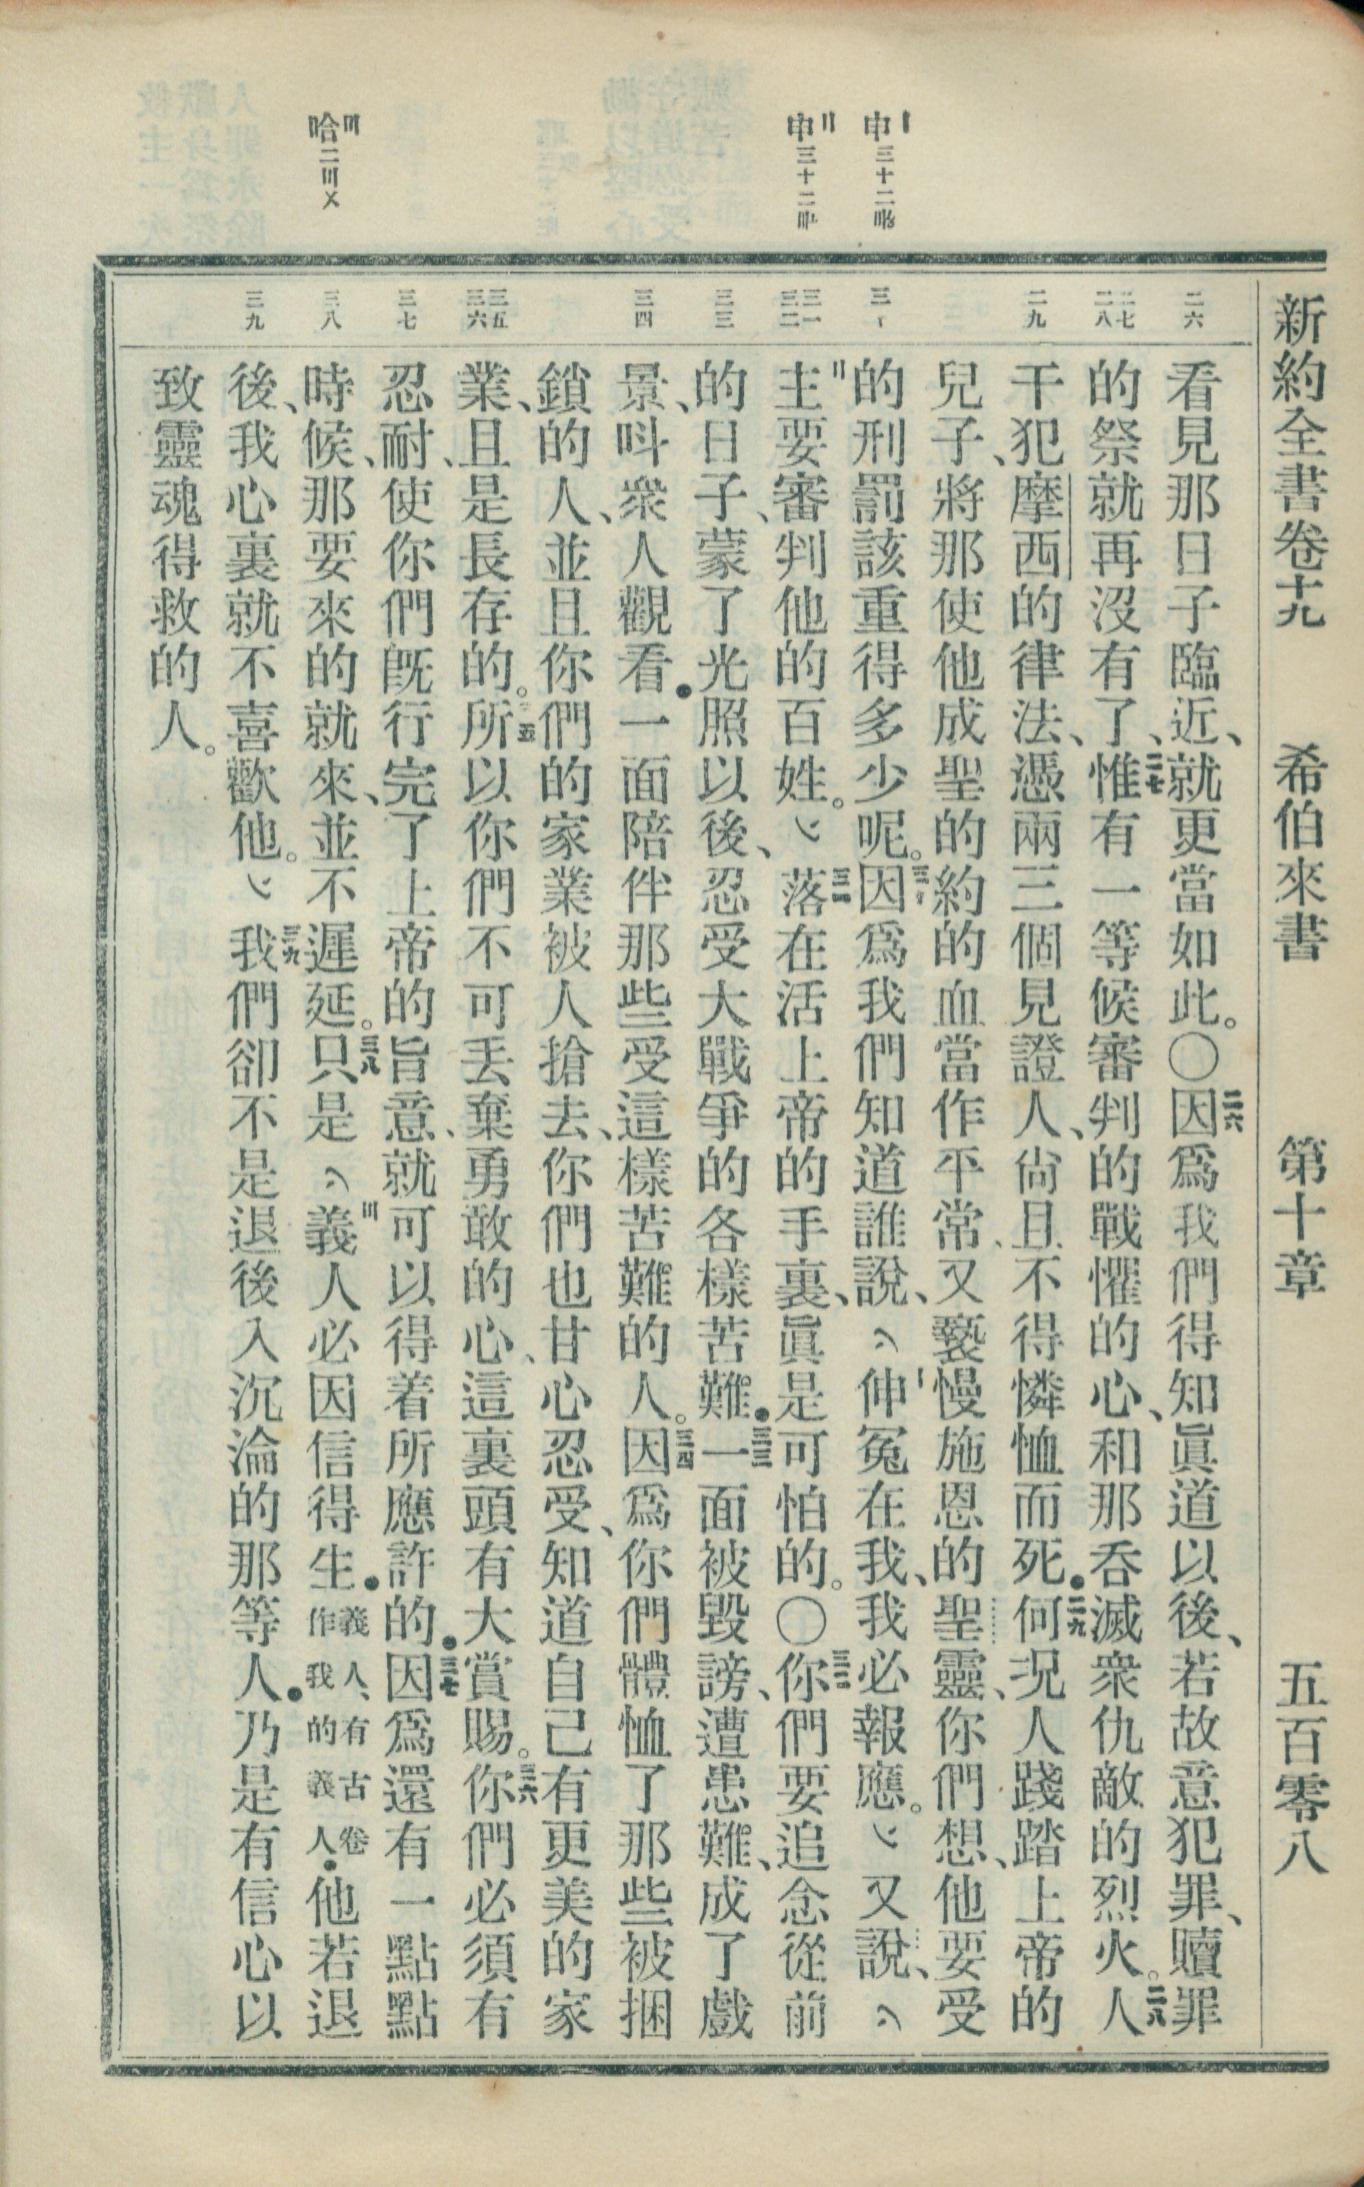 新約全書卷十九　希伯來書　第十章　五百零八
申三十二
申三十二
哈二〣〤
二六
二七
二八
二九
三十
三一
三二
三三
三四
三五
三六
三七
三八
三九
看見那日子臨近、就更當如此。〇二六因爲我們得知眞道以後、若故意犯罪、贖罪
的祭就再沒有了、二七惟有一等候審判的戰懼的心、和那呑滅衆仇敵的烈火。二八人
干犯摩西的律法、憑兩三個見證人、尙且不得憐恤而死●二九何况人踐踏上帝的
兒子、將那使他成聖的約的血當作平常、又褻慢施恩的聖靈、你們想、他要受
的刑罰該重得多少呢。三十因爲我們知道誰說、﹁〡伸冤在我、我必報應。﹂又說、﹁
〢主要審判他的百姓。﹂三一落在活上帝的手裏、眞是可怕的。〇三二你們要追念從前
的日子、蒙了光照以後、忍受大戰爭的各樣苦難●三三一面被毀謗、遭患難、成了戲
景、呌衆人觀看●一面陪伴那些受這樣苦難的人。三四因爲你們體恤了那些被捆
鎖的人、並且你們的家業被人搶去、你們也甘心忍受、知道自己有更美的家
業、且是長存的。三五所以你們不可丟棄勇敢的心、這裏頭有大賞賜。三六你們必須有
忍耐、使你們旣行完了上帝的旨意、就可以得着所應許的●三七因爲還有一點點
時候、那要來的就來、並不遲延。三八只是﹁〣義人必因信得生●義人、有古卷作我的義人●他若退
後、我心裏就不喜歡他。﹂三九我們卻不是退後入沉淪的那等人●乃是有信心以
致靈魂得救的人。